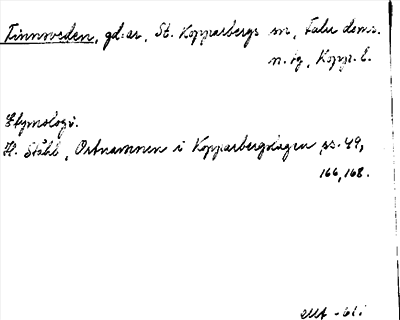 Finnsveden, gd:ar, St. Kopparbergs sn, Falu doms.
n. tg, Kopp. l.
Etymologi.
H. Ståhl, Ortnamnen i Kopparbergslagen, ss. 49,
166, 168.